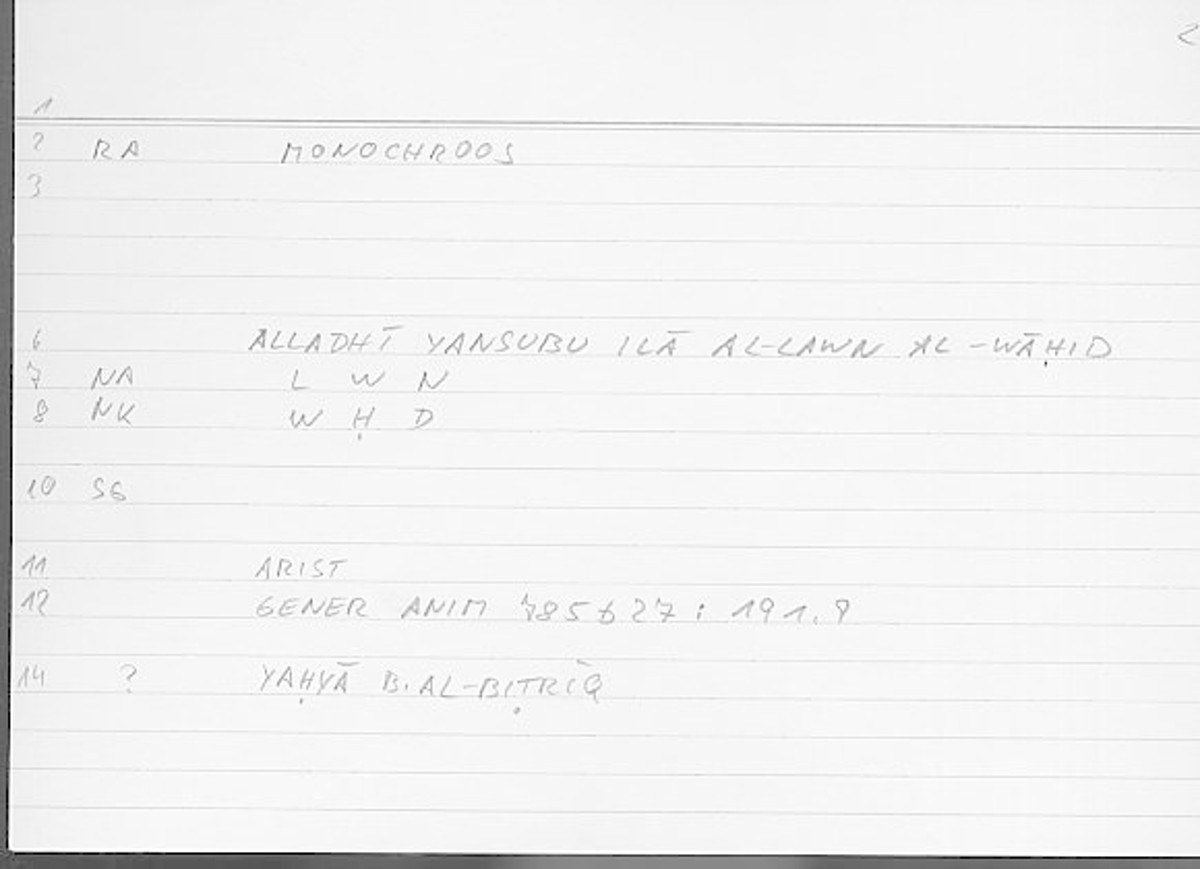 2
1
2 RA MONOCHROOS
3
6 ALLADHĪ YANSUBU ILĀ AL-LAWN AL-WĀḤID
7 NA L W N
8 NK W Ḥ D
10 SG
11 ARIST
12 GENER ANIM 785b27: 191.9
14 ? YAḤYĀ B. AL-BIṬRĪQ